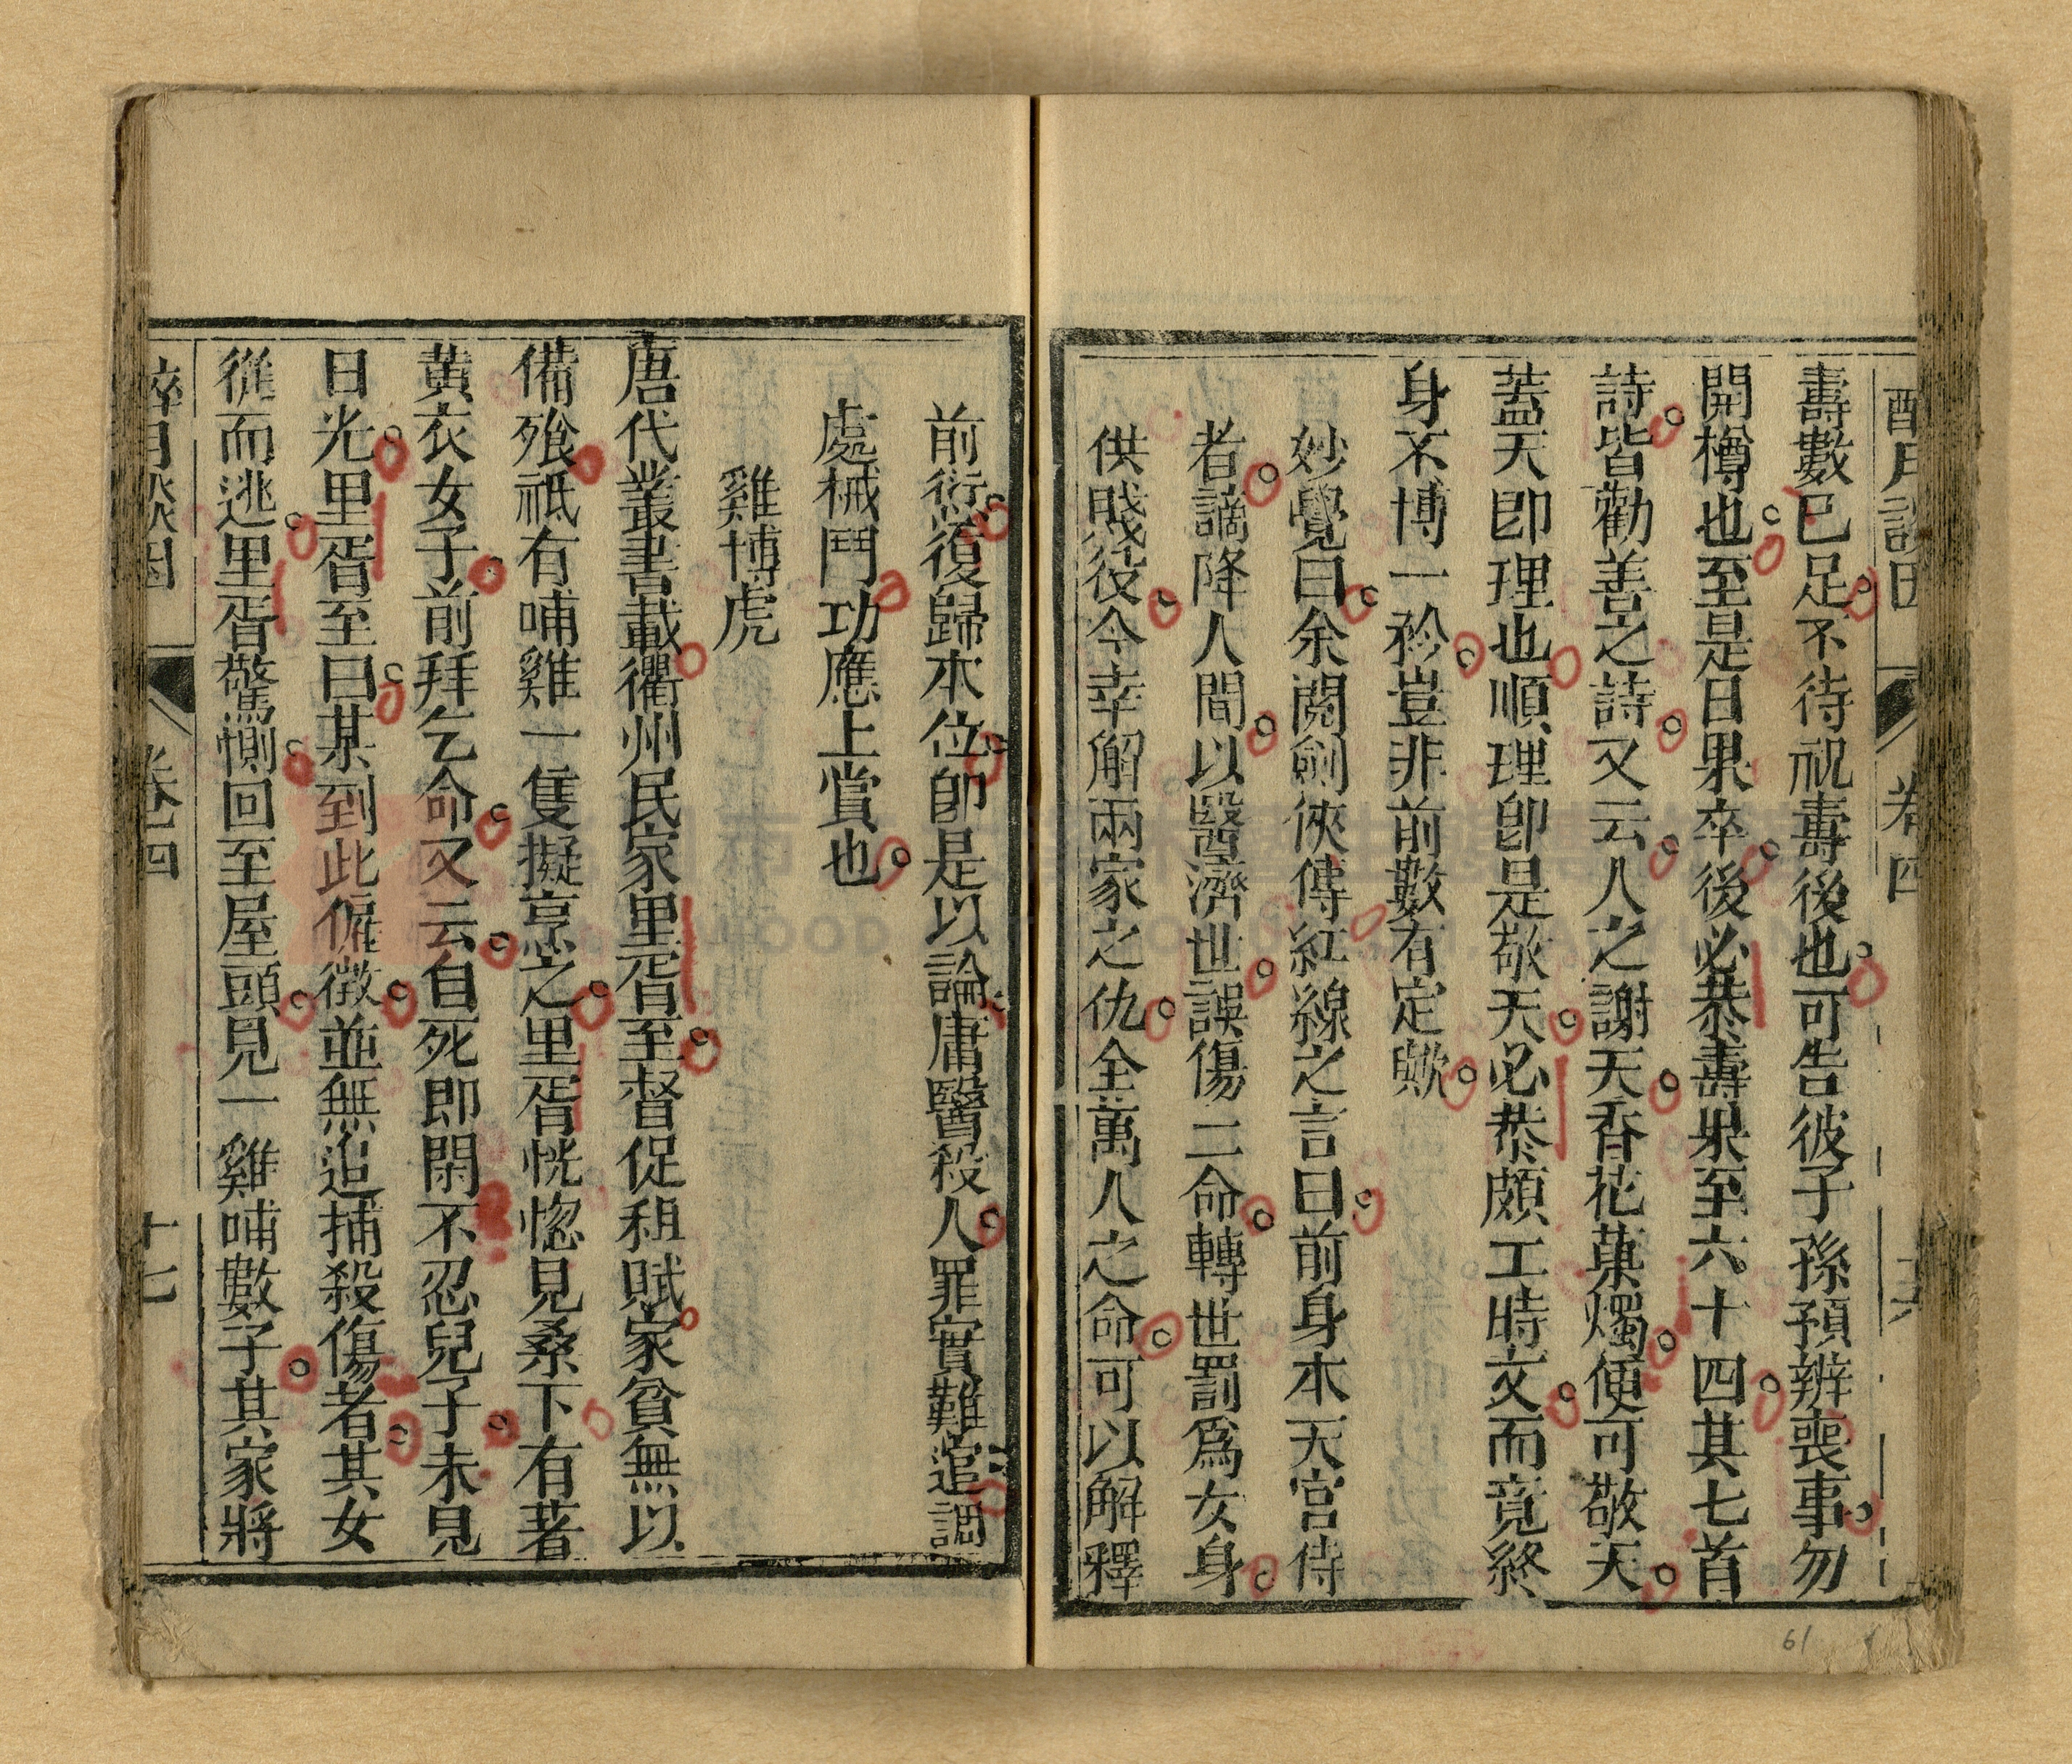 醉月談因 卷四 十六
壽數已足不待祝壽後也可告彼子孫預辨喪事勿
開樽也至是日果卒後必恭壽果至六十四其七首
詩皆勸善之詩又云人之謝天香花菓燭便可敬天
蓋天卽理也順理卽是敬天必恭頗工時文而竟終
身不博一衿豈非前數有定歟
妙覺曰余閱劍俠傳紅線之言曰前身本天宮侍
者謫降人間以醫濟世誤傷二命轉世罰爲女身
供賤役今幸解兩家之仇全萬人之命可以解釋
前衍復歸本位卽是以論庸醫殺人罪實難逭調
處械鬥功應上賞也
雞博虎
唐代叢書載衢州民家里胥至督促租賦家貧無以
備飱祇有哺雞一隻擬烹之里胥恍惚見桑下有著
黄衣女子前拜乞命又云自死即閑不忍兒子未見
日光里胥至曰某到此催徵並無追捕殺傷者其女
從而逃里胥驚惻回至屋頭見一雞哺數子其家將
醉月談因 卷四 十七
61